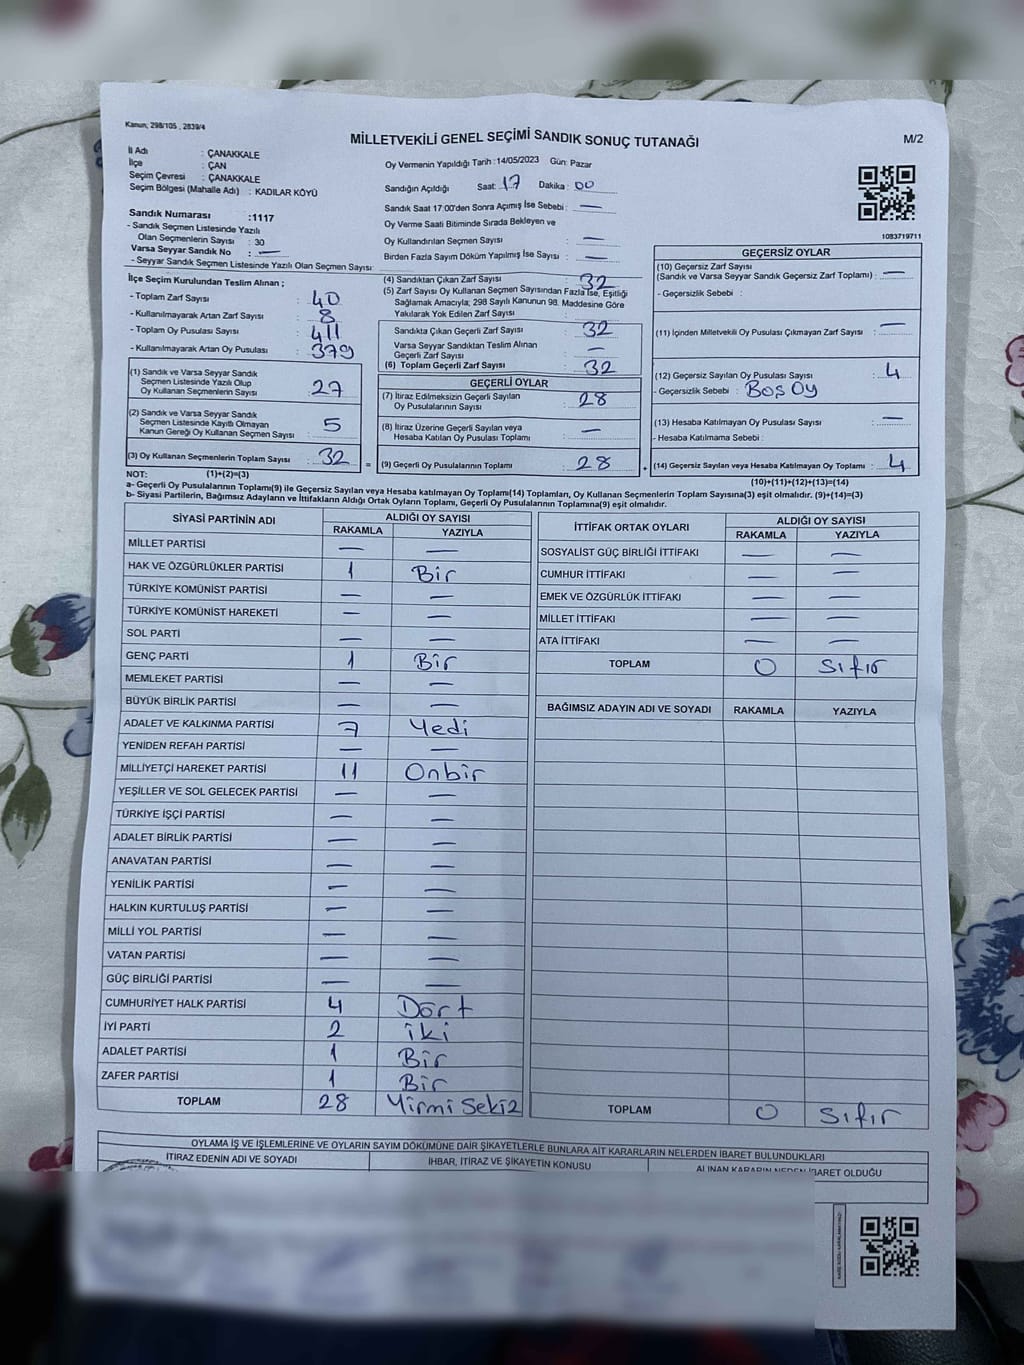 Kanun; 298/105 , 2839/4
MİLLETVEKİLİ GENEL SEÇİMİ SANDIK SONUÇ TUTANAĞI
M/2
İl Adı : ÇANAKKALE
İlçe : ÇAN
Seçim Çevresi : ÇANAKKALE
Seçim Bölgesi (Mahalle Adı) : KADILAR KÖYÜ
Sandık Numarası :1117
- Sandık Seçmen Listesinde Yazılı
Olan Seçmenlerin Sayısı : 30
Varsa Seyyar Sandık No : —
- Seyyar Sandık Seçmen Listesinde Yazılı Olan Seçmen Sayısı:
Oy Vermenin Yapıldığı Tarih :14/05/2023 Gün: Pazar
Sandığın Açıldığı Saat: 17 Dakika : 00
Sandık Saat 17:00'den Sonra Açımış İse Sebebi : —
Oy Verme Saati Bitiminde Sırada Bekleyen ve
Oy Kullandırılan Seçmen Sayısı : —
Birden Fazla Sayım Döküm Yapılmış İse Sayısı : —
1083719711
İlçe Seçim Kurulundan Teslim Alınan ;
- Toplam Zarf Sayısı : 40
- Kullanılmayarak Artan Zarf Sayısı : 8
- Toplam Oy Pusulası Sayısı : 411
- Kullanılmayarak Artan Oy Pusulası : 379
(1) Sandık ve Varsa Seyyar Sandık
Seçmen Listesinde Yazılı Olup
Oy Kullanan Seçmenlerin Sayısı : 27
(2) Sandık ve Varsa Seyyar Sandık
Seçmen Listesinde Kayıtlı Olmayan
Kanun Gereği Oy Kullanan Seçmen Sayısı : 5
(3) Oy Kullanan Seçmenlerin Toplam Sayısı : 32
(4) Sandıktan Çıkan Zarf Sayısı : 32
(5) Zarf Sayısı Oy Kullanan Seçmen Sayısından Fazla İse, Eşitliği
Sağlamak Amacıyla; 298 Sayılı Kanunun 98. Maddesine Göre
Yakılarak Yok Edilen Zarf Sayısı :
Sandıkta Çıkan Geçerli Zarf Sayısı : 32
Varsa Seyyar Sandıktan Teslim Alınan
Geçerli Zarf Sayısı : —
(6) Toplam Geçerli Zarf Sayısı : 32
GEÇERLİ OYLAR
(7) İtiraz Edilmeksizin Geçerli Sayılan
Oy Pusulalarının Sayısı : 28
(8) İtiraz Üzerine Geçerli Sayılan veya
Hesaba Katılan Oy Pusulası Toplamı : —
= (9) Geçerli Oy Pusulalarının Toplamı : 28 +
GEÇERSİZ OYLAR
(10) Geçersiz Zarf Sayısı
(Sandık ve Varsa Seyyar Sandık Geçersiz Zarf Toplamı) : —
- Geçersizlik Sebebi :
(11) İçinden Milletvekili Oy Pusulası Çıkmayan Zarf Sayısı : —
(12) Geçersiz Sayılan Oy Pusulası Sayısı : 4
- Geçersizlik Sebebi : Boş Oy
(13) Hesaba Katılmayan Oy Pusulası Sayısı : —
- Hesaba Katılmama Sebebi :
(14) Geçersiz Sayılan veya Hesaba Katılmayan Oy Toplamı : 4
NOT: (1)+(2)=(3)
(10)+(11)+(12)+(13)=(14)
a- Geçerli Oy Pusulalarının Toplamı(9) ile Geçersiz Sayılan veya Hesaba katılmayan Oy Toplamı(14) Toplamları, Oy Kullanan Seçmenlerin Toplam Sayısına(3) eşit olmalıdır. (9)+(14)=(3)
b- Siyasi Partilerin, Bağımsız Adayların ve İttifakların Aldığı Ortak Oyların Toplamı, Geçerli Oy Pusulalarının Toplamına(9) eşit olmalıdır.
SİYASİ PARTİNİN ADI ALDIĞI OY SAYISI
RAKAMLA YAZIYLA
MİLLET PARTİSİ — —
HAK VE ÖZGÜRLÜKLER PARTİSİ 1 Bir
TÜRKİYE KOMÜNİST PARTİSİ — —
TÜRKİYE KOMÜNİST HAREKETİ — —
SOL PARTİ — —
GENÇ PARTİ 1 Bir
MEMLEKET PARTİSİ — —
BÜYÜK BİRLİK PARTİSİ — —
ADALET VE KALKINMA PARTİSİ 7 Yedi
YENİDEN REFAH PARTİSİ — —
MİLLİYETÇİ HAREKET PARTİSİ 11 Onbir
YEŞİLLER VE SOL GELECEK PARTİSİ — —
TÜRKİYE İŞÇİ PARTİSİ — —
ADALET BİRLİK PARTİSİ — —
ANAVATAN PARTİSİ — —
YENİLİK PARTİSİ — —
HALKIN KURTULUŞ PARTİSİ — —
MİLLİ YOL PARTİSİ — —
VATAN PARTİSİ — —
GÜÇ BİRLİĞİ PARTİSİ — —
CUMHURİYET HALK PARTİSİ 4 Dört
İYİ PARTİ 2 iki
ADALET PARTİSİ 1 Bir
ZAFER PARTİSİ 1 Bir
TOPLAM 28 Yirmi Sekiz
İTTİFAK ORTAK OYLARI ALDIĞI OY SAYISI
RAKAMLA YAZIYLA
SOSYALİST GÜÇ BİRLİĞİ İTTİFAKI — —
CUMHUR İTTİFAKI — —
EMEK VE ÖZGÜRLÜK İTTİFAKI — —
MİLLET İTTİFAKI — —
ATA İTTİFAKI — —
TOPLAM 0 Sıfır
BAĞIMSIZ ADAYIN ADI VE SOYADI RAKAMLA YAZIYLA
TOPLAM 0 Sıfır
OYLAMA İŞ VE İŞLEMLERİNE VE OYLARIN SAYIM DÖKÜMÜNE DAİR ŞİKAYETLERLE BUNLARA AİT KARARLARIN NELERDEN İBARET BULUNDUKLARI
İTİRAZ EDENİN ADI VE SOYADI İHBAR, İTİRAZ VE ŞİKAYETİN KONUSU ALINAN KARARIN NEDEN İBARET OLDUĞU